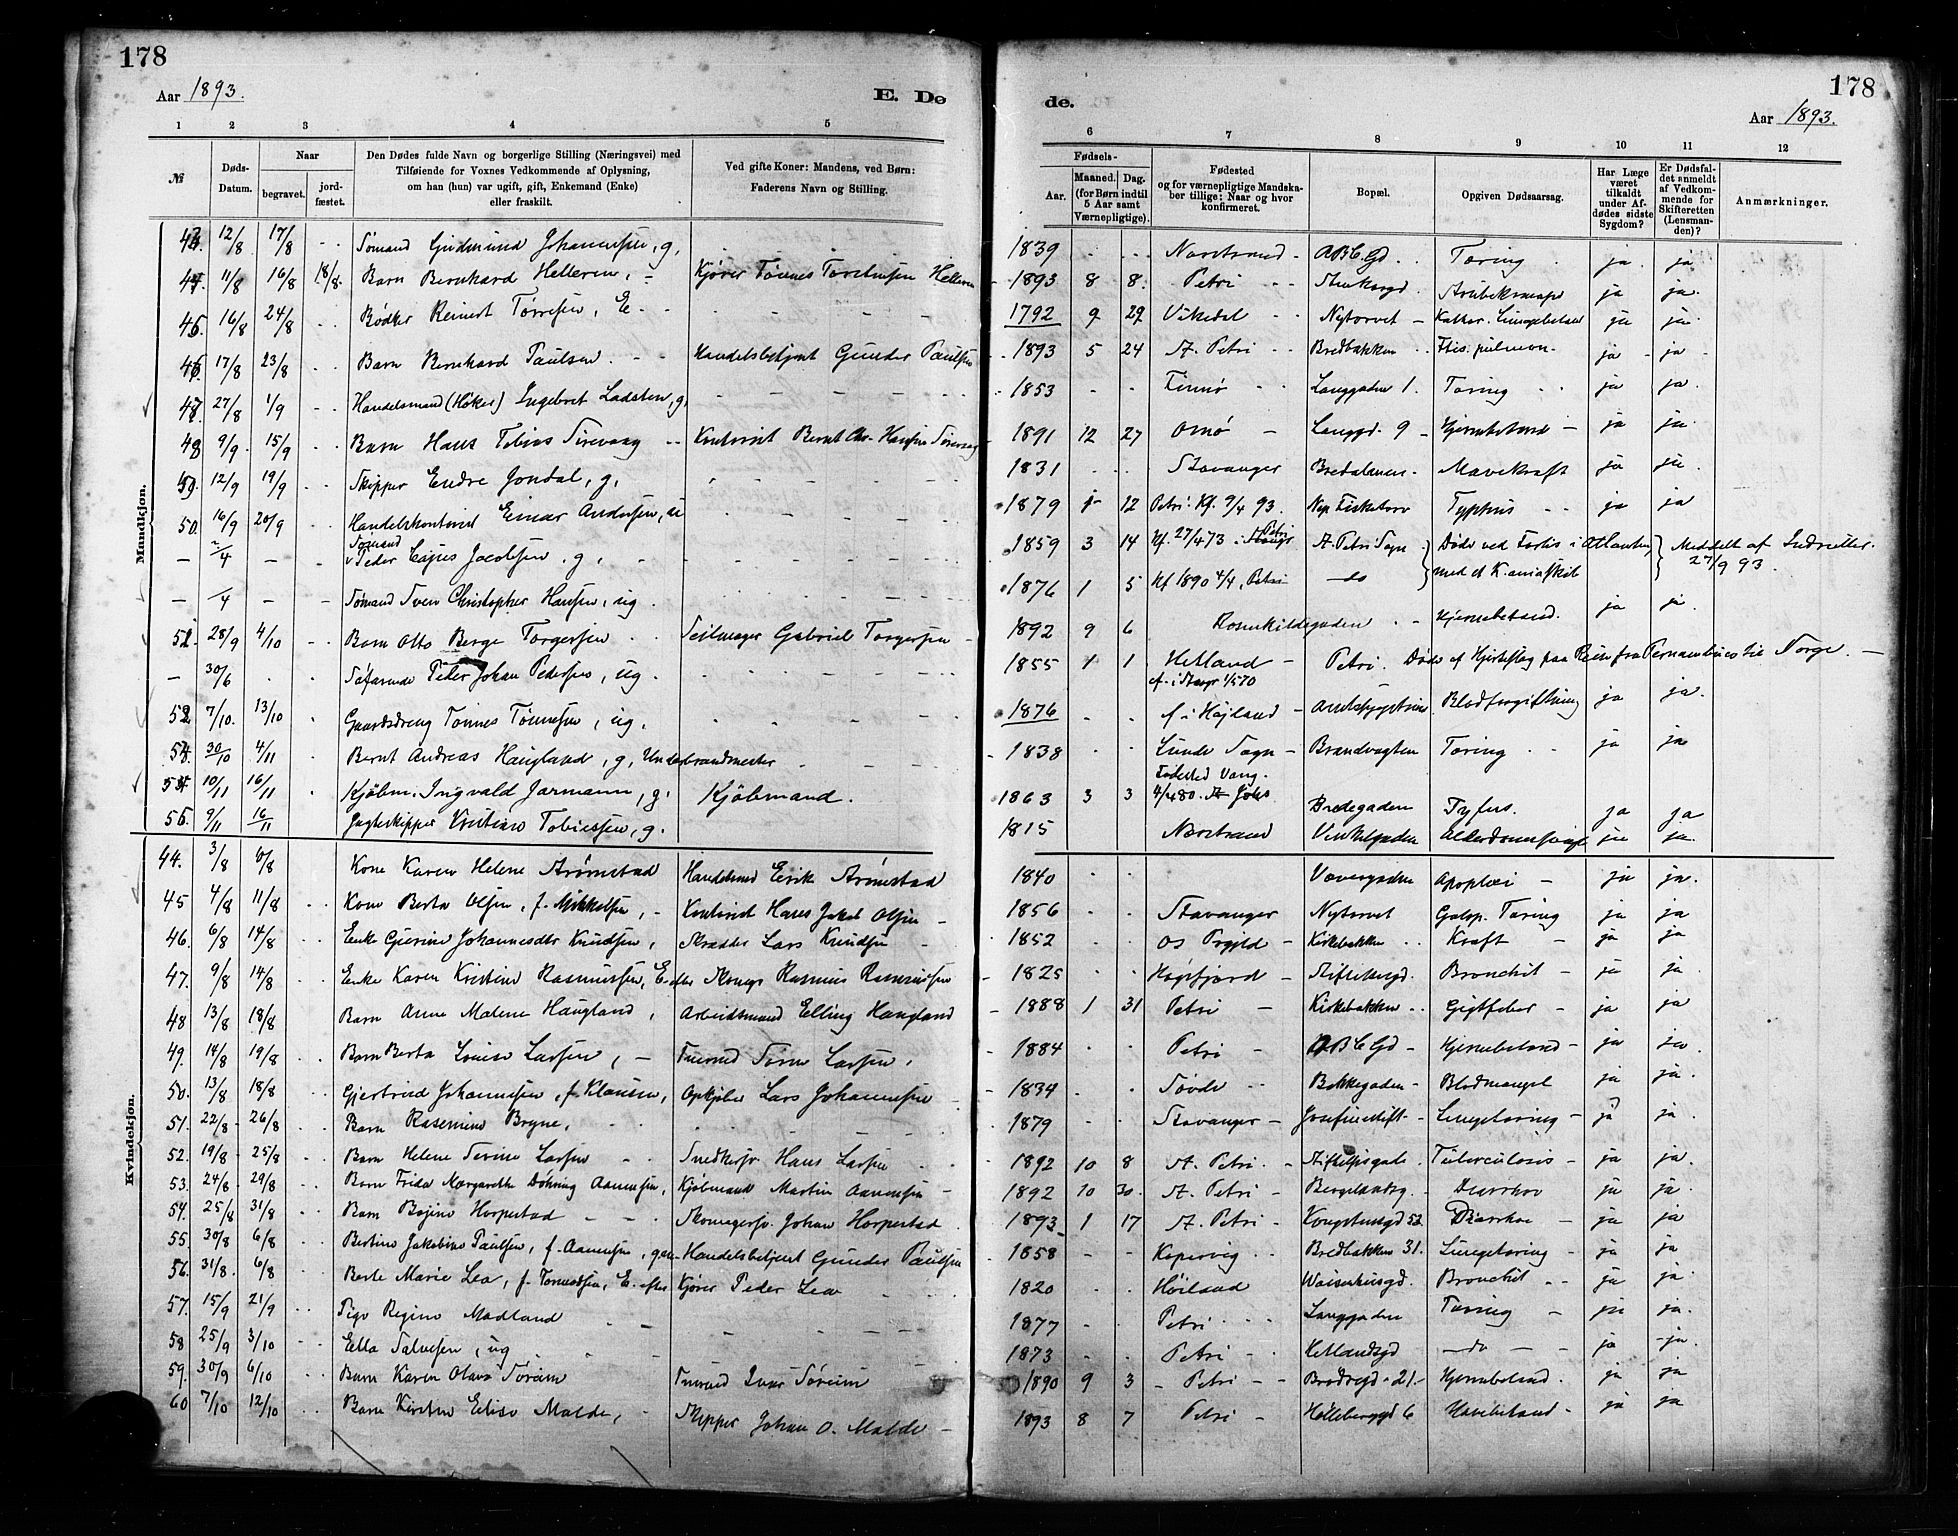 178
Aar 1893.
E. Dø
1 2 3 4 5
№
Døds-Datum.
Naar
begravet.
jordfæstet.
Den Dødes fulde Navn og borgerlige Stilling (Næringsvei) med
Tilføiende for Voxnes Vedkommende af Oplysning,
om han (hun) var ugift, gift, Enkemand (Enke)
eller fraskilt.
Ved gifte Koner: Mandens, ved Børn:
Faderens Navn og Stilling.
Mandkjøn.
12/8 17/8 Sømand Gudmund Johannesen, g,
11/8 16/8 18/8 Barn Bernhard Helleren, - Kjører Tønnes Torstensen Helleren
45. 16/8 24/8 Bødker Reinert Tørresen, E
46. 17/8 23/8 Barn Bernhard Paulsen Handelsbetjent Gunder Paulsen
47. 27/8 1/9 Handelsmand (Høker) Ingebret Ladsten, g,
48 9/9 15/9 Barn Hans Tobias Sirevaag Kontorist Bernt Chr. Hansen Sirevaag
12/9 19/9 Skipper Endre Jondal, g,
50. 16/9 20/9 Handelskontorist Einar Andersen, u
- /4 Sømand Peder Jacobsen, g,
- /4 - - Sømand Sven Christopher Hansen, ug.
51. 28/9 4/10 Barn Otto Berge Torgersen Seilmager Gabriel Torgersen
- 30/6 Søfarende Peder Johan Pedersen, ug.
52. 7/10. 13/10 Gaardsdreng Tønnes Tønnesen, ug,
30/10 4/11 Bernt Andreas Haugland, g, Underbrandmester
54 10/11 16/11 Kjøbm. Ingvald Jarmann, g. Kjøbmand.
55. 9/11 16/11 Jagteskipper Kristian Tobiassen, g.
Kvindekjøn.
44. 3/8 6/8 Kone Karen Helene Arønestad Handelsmd Eerik Arønestad
45 4/8 11/8 Kone Berta Olsen, f. Mikkelsen, - Kontorist Hans Jakob Olsen -
46. 6/8 14/8 Enke Gurine Johannesdtr Knudsen, Skrædder Lars Knudsen
47. 9/8 14/8 Enke Karen Kristine Rasmussen, E. efter Skomgr Rasmus Rasmussen
48 13/8 18/8 Barn Anne Malene Haugland, Arbeidsmand Elling Haugland
49. 14/8 19/8 Barn Berta Louise Larsen, - Tørres Larsen,
50. 13/8 18/8 Gjertrud Johannesen, f. Klausen, Opkjøber Lars Johannesen
51. 22/8 26/8 Barn Rasmine Bryne,
52. 19/8 25/8 Barn Helene Serine Larsen Snedkersv Hans Larsen
53. 24/8 29/8 Barn Frida Margarethe Døhning Aanensen, Kjøbmand Martin Aanensen
54. 25/8 31/8 Barn Bojine Horpestad Skomagersv. Johan Horpestad
55. 30/8 6/8 Bertine Jakobine Paulsen, f. Aanensen, gm Handelsbetjent Gunder Paulsen
56. 31/8. 6/8 Berte Marie Lea, f. Tormodsen, E. efter Kjører Peder Lea
57. 15/9 21/9 Pige Regine Madland
58 25/9 3/10 Ella Salvesen, ug
59. 30/9 6/10 Barn Karen Olava Søreim Ivar Søreim
60 7/10 12/10 Barn Kirsten Elise Malde, Skipper Johan O. Malde
178
de.
Aar 1893.
6 7 8 9 10 11 12
Fødsels-
Aar.
Maaned. Dag.
(for Børn indtil
5 Aar samt
Værnepligtige).
Fødested
og for værnepligtige Mandskaber
tillige: Naar og hvor
konfirmeret.
Bopæl.
Opgiven Dødsaarsag.
Har Læge
været
tilkaldt
under Afdødes
sidste
Sygdom?
Er Dødsfaldet
anmeldt
af Vedkommende
for
Skifteretten
(Lensmanden)?
Anmærkninger.
1839 Narstrand - ABC Gd. Tæring ja ja
1893 8 8. Petri Stenkargd. ja ja.
1792 9 29 Vikedal Nytorvet - Kathar. Lungebetænd ja ja.
1893 5 24 St. Petri Bredbakken ja ja
1853 Finnø Langgaden 1. Tæring ja ja
1891 12 27 Omø - Langgd. 9 - Hjernebetænd - ja ja.
1831 Stavanger Bredalmen - Mavekræft ja ja
1879 1 12 Petri: Kf. 9/4 93. Ny Fisketorv Typhus ja ja
1859 3 14 Kf. 27/4 73 i Petri St. Petri Sogn Døde ved Forlis i Atlanten Meddelt af Indretter.
1876 1 5 Kf 1890 4/4, Petri - do med et K.aniaskib 27/9 93.
1892 9 6 Rosenkildegaden Hjernebetænd. ja ja.
1855 1 1 Hetland - Petri. Døde af Hjerteslag paa Reise fra Pernambuco til Norge.
1876 f i Højland - Amtssygehus Blodforgiftning ja ja.
1838 Lunde Sogn - Brandvagten Tæring ja ja
1863 3 3 Fødested Vang. Bredegaden Tyfus. ja ja
1815 Nærstrand Vinkelgaden Alderdomssvagh ja ja.
1840 Vævergaden Apoplexi - ja ja.
1856 Stavanger Nytorvet Galop. Tæring ja ja
1852 Kirkebakken Kræft - ja ja
1825 Høgsfjord - Stiftelsesgd. Bronchit - ja ja
1888 1 31 Petri - Kirkebakken Gigtfeber - ja ja
1884 Petri - ABC Gd - Hjernebetænd - ja ja
1834 Søvde Bakkegaden - Blodmangel ja ja.
1879 Stavanger - Josefine Stift - Lungetæring - ja ja.
1892 10 8 St. Petri. Stiftelsesgade. Tuberculosis - ja ja.
1892 10 30. St. Petri - Bergelandsg. - Diarrhoe ja ja.
1893 1 17 St. Petri - Kongstensgd 52 Diarrhoe - ja ja
1858 Kopervig Bredbakken 31. Lungetæring - ja ja
1820 Høiland Waisenhusgd. Bronchit ja ja.
1877 Petri Langgaden Tæring - ja ja.
1873 Petri Hetlandsgd - do - ja - ja.
1890 9 3 - Petri Brødregd - 21. - Hjernebetænd. ja ja
1893 8 7 Petri - Høllebergd 6 Mavebetænd - ja ja